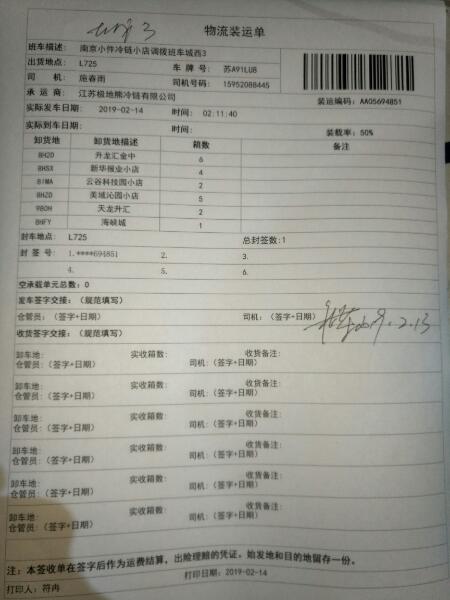 物流装运单
班车描述: 南京小件冷链小店调拨班车城西3
出货地点: L725 车 牌 号: 苏A91LU8
司 机: 施春雨 司机号码: 15952088445
承 运 商: 江苏极地熊冷链有限公司 装运编码: AAO5694851
实际发车日期: 2019-02-14 时间: 02:11:40
实际到车日期: 时间: 装载率: 50%
卸货地 卸货地描述 箱数 备注
8H2D 升龙汇金中 6
8HSX 新华报业小店 4
8IMA 云谷科技园小店 2
8HZD 美域沁园小店 5
980H 天龙升汇 2
8HFY 海峡城 1
封车地点: L725 总封签数:1
封 签 号: 1.****694851 2. 3.
4. 5. 6.
空承载单元总数: 0
发车签字交接: (规范填写)
仓管员: (签字+日期) 司机: (签字+日期) 2019.2.13
收货签字交接: (规范填写)
卸车地: 实收箱数: 收货备注:
仓管员: (签字+日期) 司机: (签字+日期)
卸车地: 实收箱数: 收货备注:
仓管员: (签字+日期) 司机: (签字+日期)
卸车地: 实收箱数: 收货备注:
仓管员: (签字+日期) 司机: (签字+日期)
卸车地: 实收箱数: 收货备注:
仓管员: (签字+日期) 司机: (签字+日期)
卸车地: 实收箱数: 收货备注:
仓管员: (签字+日期) 司机: (签字+日期)
卸车地: 实收箱数: 收货备注:
仓管员: (签字+日期) 司机: (签字+日期)
注: 本签收单在签字后作为运费结算, 出险理赔的凭证。始发地和目的地留存一份。
打印人: 符冉 打印日期: 2019-02-14